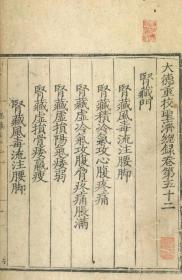 大德重校聖濟總録卷第五十二
腎藏門
腎藏積冷氣攻心腹疼痛
腎藏虛冷氣攻腹脅疼痛脹滿
腎藏虛損陽氣痿弱
腎藏虛損骨痿羸瘦
腎藏風毒流注腰脚
腎藏風毒流注腰脚